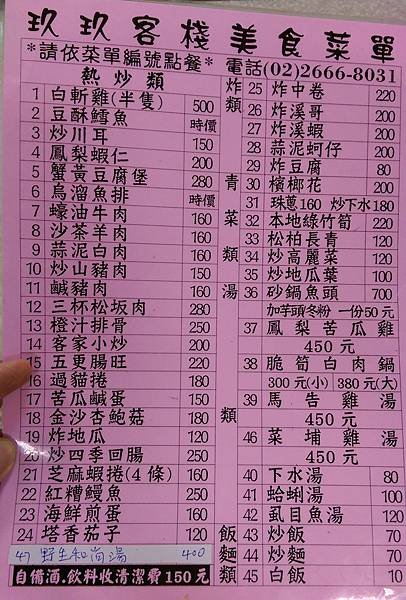 玖玖客棧美食菜單
*請依菜單編號點餐* 電話(02)2666-8031
熱炒類
1 白斬雞(半隻) 500
2 豆酥鱈魚 時價
3 炒川耳 150
4 鳳梨蝦仁 200
5 蟹黃豆腐堡 280
6 烏溜魚排 時價
7 蠔油牛肉 160
8 沙茶羊肉 160
9 蒜泥白肉 160
10 炒山豬肉 150
11 鹹豬肉 160
12 三杯松坂肉 280
13 橙汁排骨 250
14 客家小炒 200
15 五更腸旺 220
16 過貓捲 180
17 苦瓜鹹蛋 150
18 金沙杏鮑菇 180
19 炸地瓜 120
20 炒四季回腸 250
21 芝麻蝦捲(4條) 160
22 紅糟鰻魚 250
23 海鮮煎蛋 160
24 塔香茄子 120
47 野生和尚湯 400
自備酒.飲料收清潔費150元
炸類
25 炸中卷 220
26 炸溪哥 200
27 炸溪蝦 200
28 蒜泥蚵仔 200
29 炸豆腐 80
青菜類
30 檳榔花 200
31 珠蔥160 炒下水180
32 本地綠竹筍 220
33 松柏長青 120
34 炒高麗菜 120
35 炒地瓜葉 100
湯類
36 砂鍋魚頭 700
加芋頭冬粉 一份50元
37 鳳梨苦瓜雞
450元
38 脆筍白肉鍋
300元(小) 380元(大)
39 馬告雞湯
450元
46 菜埔雞湯
450元
40 下水湯 80
41 蛤蜊湯 100
42 虱目魚湯 120
飯麵類
43 炒飯 70
44 炒麵 70
45 白飯 10